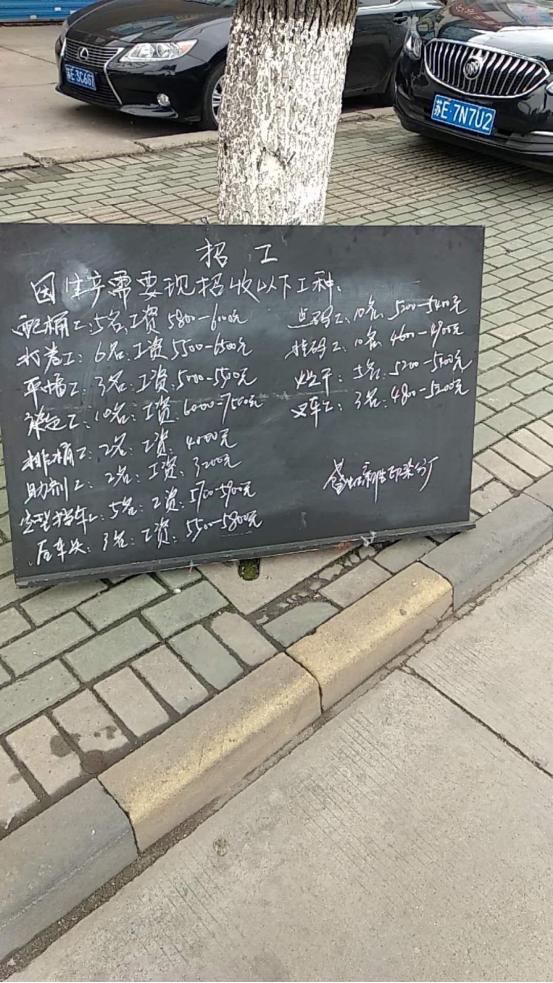 苏E·3C661
苏E·7N7U2
招工
因生产需要现招收以下工种:
配桶工:5名:工资5800-6000元
打卷工:6名:工资5500-6500元
平幅工:3名:工资5000-5500元
染色工:10名:工资:6000-7500元
排桶工:2名:工资:4000元
助剂工:2名:工资:3200元
定型挡车工:5名:工资:5700-5900元
后车头:3名:工资:5500-5800元
10名:5200-5400元
挂码工:10名:4600-4900元
烘干:5名:5200-5300元
叉车工:3名:4800-5200元
印染分厂